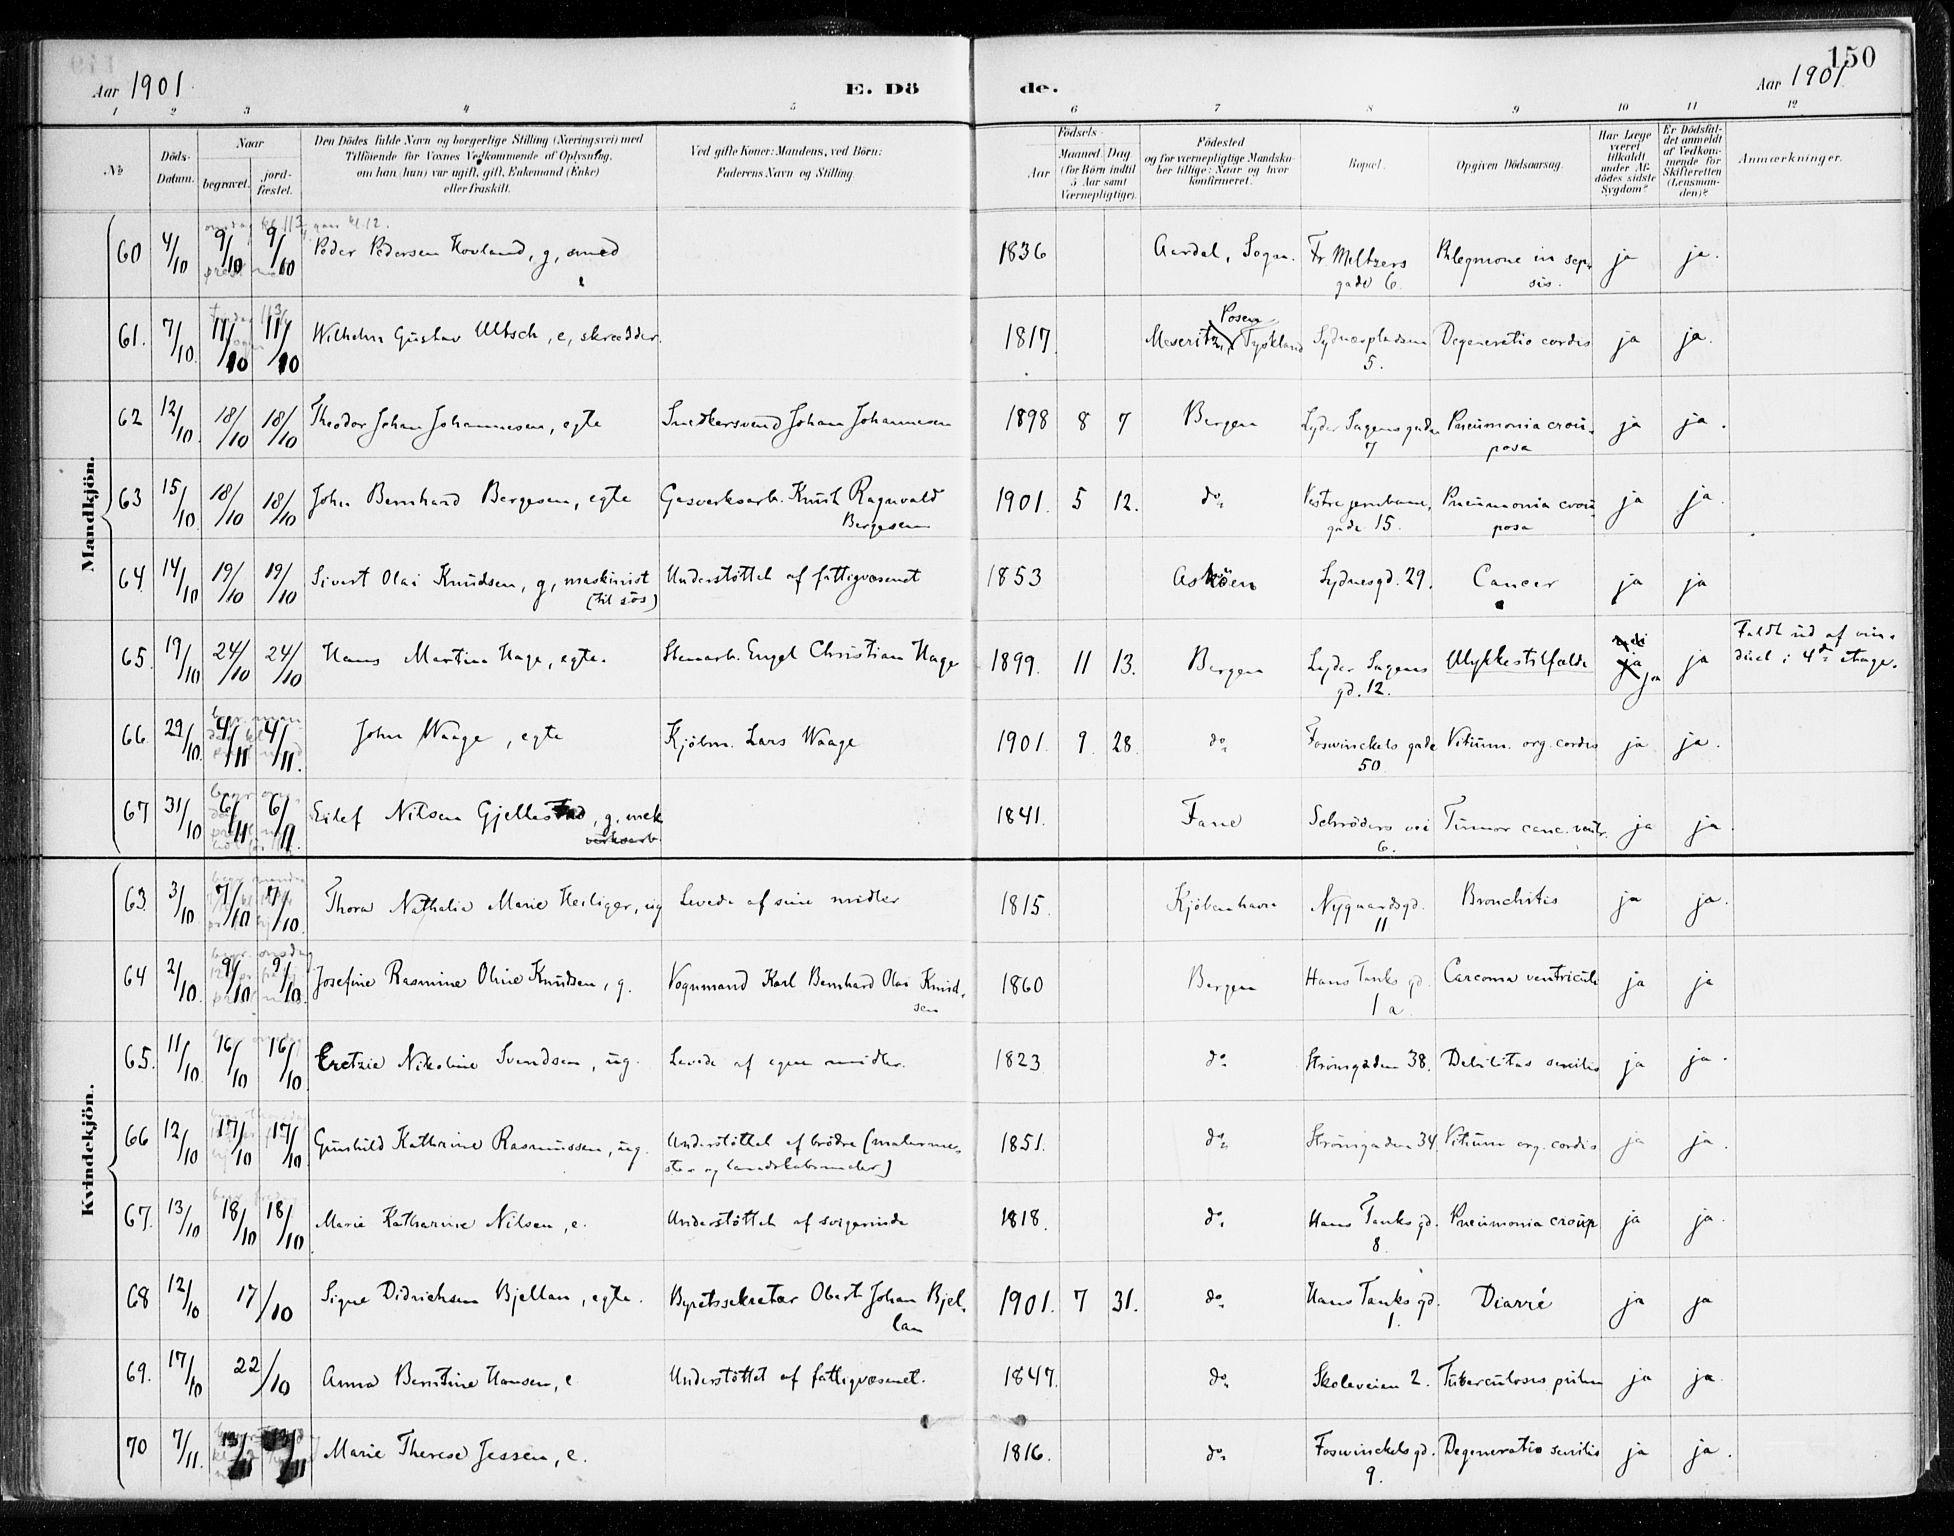 150
Aar 1901. E. Dö de. Aar 1901
1 2 3 4 5 6 7 8 9 10 11 12
No. Döds-Datum. Naar begravet. jord-fæstet. Den Dödes fulde Navn og borgerlige Stilling (Næringsvei) med Tilföiende for Voxnes Vedkommende af Oplysning, om han (hun) var ugift, gift, Enkemand (Enke) eller fraskilt. Ved gifte Koner: Mandens, ved Börn: Faderens Navn og Stilling. Födsels- Aar Maaned Dag (for Börn indtil 5 Aar samt Værnepligtige). Födested og for værnepligtige Mandskaber tillige: Naar og hvor konfirmeret. Bopæl. Opgiven Dödsaarsag. Har Læge været tilkaldt under Afdödes sidste Sygdom? Er Dödsfaldet anmeldt af Vedkommende for Skifteretten (Lensmanden)? Anmærkninger.
Mandkjön.
60 4/10 9/10 9/10 Peder Pedersen Hovland, g, smed 1836 Aardal, Sogn. Fr. Meltzers gade 6. Phlegmone in sepsis. ja ja.
61. 7/10. 11/10 11/10 Wilhelm Gustav Ultsch, e, skrædder. 1817. Meseritz, Posen Tyskland Sydnæspladsen 5. Degeneratio cordis ja ja.
62 12/10. 18/10 18/10 Theodor Johan Johannesen, egte Snedkersvend Johan Johannesen 1898 8 7 Bergen Lyder Sagens gade 7 Pneumonia crouposa ja ja.
63 15/10. 18/10 18/10 John Bernhard Bergesen, egte Gasverksarb. Knut Ragnvald Bergesen 1901. 5 12. do. Vestre jernbanegade 15. Pneumonia crouposa ja ja.
64. 14/10 19/10 19/10 Sivert Olai Knudsen, g, maskinist (til søs) Understöttet af fattigvæsenet 1853 Asköen Sydnesgd. 29. Cancer ja ja
65. 19/10 24/10 24/10 Hans Martin Hage, egte. Stenarb. Engel Christian Hage 1899. 11 13. Bergen Lyder Sagens gd. 12. Ulykkestilfælde ja ja ja Faldt ud af vinduet i 4de etage.
66. 29/10. 4/11 4/11. John Waage, egte Kjöbm. Lars Waage 1901. 9. 28. do. Foswinckels gade 50 Vitium. org. cordis ja ja.
67 31/10 6/11 6/11. Eilef Nilsen Gjellestad, g, mek verksarb. 1841. Fane Schröders vei 6. Tumor canc. ventr. ja ja.
Kvindekjön.
63. 3/10 7/10 7/10. Thora Nathalia Marie Heiliger, ug Levede af sine midler 1815. Kjöbenhavn Nygaardsgd. 11 Bronchitis ja ja.
64 2/10. 9/10 9/10. Josefine Rasmine Oline Knudsen, g. Vognmand Karl Bernhard Olai Knudsen 1860 Bergen Hans Tanks gd. 1 a. Carcoma ventriculi ja ja
65. 11/10 16/10 16/10 Nikoline Svendsen, ug. Levede af egne midler. 1823 do. Strömgaden 38. Debilitas senilis ja ja.
66 12/10 17/10 17/10. Gunhild Kathrine Rasmussen, ug. Understöttet af brödre (malermester og landskabsmaler) 1851. do. Strömgaden 34. Vitium org. cordis ja ja.
67. 13/10 18/10 18/10 Marie Katharine Nilsen, e. Understöttet af svigerinde 1818. do. Hans Tanks gd. 8. Pneumonia croup. ja ja.
68 12/10 17/10 Signe Didrichsen Bjellan, egte. Byretssekretær Obert Johan Bjellan 1901. 7 31. do. Hans Tanks gd. 1. Diarré ja ja
69. 17/10 22/10 Anna Berntine Hansen, e Understöttet af fattigvæsenet. 1847. do. Skoleveien 2. Tuberculosis pulm ja ja.
70 7/11. 13/11 13/11 Marie Therese Jessen, e. 1816. do. Foswinckels gd. 9. Degeneratio senilis ja ja.